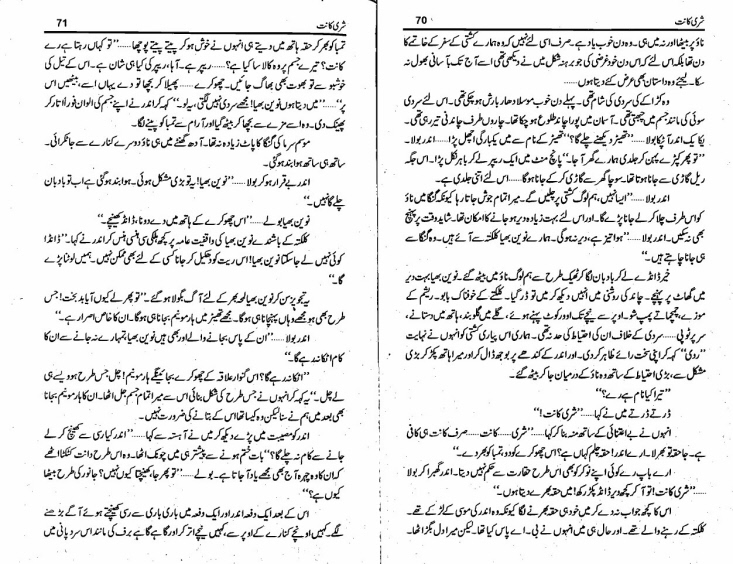 شری کانت 70
ناؤ پر بیٹھا اور نہ میں ہی۔ وہ دن خوب یاد ہے۔ صرف اسی لئے نہیں کہ وہ ہمارے کشتی کے سفر کے خاتمے کا
دن تھا بلکہ اس لئے کہ اس دن خود غرضی کی جو برہنہ شکل میں نے دیکھی تھی اسے آج تک بآسانی بھول نہ
سکا۔ لیجئے وہ داستان بھی عرض کئے دیتا ہوں۔
وہ کڑاکے کی سردی کی شام تھی۔ پہلے دن خوب موسلا دھار بارش ہو چکی تھی۔ اس لئے سردی
سوئی کی مانند جسم میں چبھتی تھی۔ آسمان میں پورا چاند طلوع ہو چکا تھا۔ چاروں طرف چاندنی تیر رہی تھی۔
یکا یک اندر آ ٹپکا بولا......"تھیٹر دیکھنے چلے گا؟" تھیٹر کے نام سے میں یکبارگی اچھل پڑا...... اندر بولا۔
"تو پھر کپڑے پہن کر جلدی ہمارے گھر آ جا۔" پانچ منٹ میں ایک ریپر لے کر باہر نکل پڑا۔ اس جگہ
ریل گاڑی سے جانا ہوتا تھا۔ سوچا گھر سے گاڑی کر کے جانا ہو گا...... اس لئے اتنی جلدی ہے۔
اندر بولا......"ایسا نہیں، ہم لوگ کشتی پر چلیں گے۔ میرا تمام جوش جاتا رہا کیونکہ گنگا میں ناؤ
کو اس طرف چلا کر لے جانا پڑے گا۔ اور اس لئے بہت زیادہ دیر ہو جانے کا امکان تھا۔ شاید وقت پر پہنچ
بھی نہ سکیں۔ اندر بولا......"ہوا تیز ہے، دیر نہ ہو گی۔ ہمارے نوین بھیا کلکتہ سے آئے ہیں۔ وہ گنگا سے
ہی جانا چاہتے ہیں۔"
خیر ڈانڈ لے کر بادبان لگا کر ٹھیک طرح سے ہم لوگ ناؤ میں بیٹھ گئے۔ نوین بھیا بہت دیر
میں گھاٹ پر پہنچے۔ چاند کی روشنی میں انہیں دیکھ کر میں تو ڈر گیا۔ کلکتے کے خوفناک بابو۔ ریشم کے
موزے، چمچماتے پمپ شو۔ اوپر سے نیچے تک اوور کوٹ پہنے ہوئے، گلے میں گلوبند، ہاتھ میں دستانے،
سر پر ٹوپی...... سردی کے خلاف ان کی احتیاط کی حد نہ تھی۔ ہماری اس پیاری کشتی کو انہوں نے نہایت
"ردی" کہہ کر اپنی سخت رائے ظاہر کر دی۔ اور اندر کے کندھے پر بوجھ ڈال کر اور میرا ہاتھ پکڑ کر بڑی
مشکل سے، بڑی احتیاط کے ساتھ وہ ناؤ کے درمیان جا کر بیٹھ گئے۔
"تیرا کیا نام ہے رے؟"
ڈرتے ڈرتے میں نے کہا......"شری کانت!"
انہوں نے بے اعتنائی کے ساتھ منہ بنا کر کہا......"شری...... کانت...... صرف کانت ہی کافی
ہے۔ جا حقہ تو بھر لا۔ ارے اندر! حقہ چلم کہاں ہے؟ اس چھوکرے کو دو تمباکو بھر دے۔"
ارے باپ رے کوئی اپنے نوکر کو بھی اس طرح حقارت سے حکم نہیں دیتا۔ اندر گھبرا کر بولا
......"شری کانت! تو آ کر کچھ دیر ڈانڈ پکڑ رکھ! میں حقہ بھر دیتا ہوں۔"
اس کا کچھ جواب نہ دے کر میں خود ہی حقہ بھرنے لگا کیونکہ وہ اندر کی موسی کے لڑکے تھے۔
کلکتہ کے رہنے والے تھے۔ اور حال ہی میں انہوں نے بی۔ اے پاس کیا تھا۔ لیکن میرا دل بگڑا تھا۔
شری کانت 71
تمباکو بھر کر حقہ ہاتھ میں دیتے ہی انہوں نے خوش ہو کر پیتے پیتے پوچھا......"تو کہاں رہتا ہے رے
کانت؟ تیرے جسم پر وہ کالا سا کیا ہے؟...... ریپر ہے۔ آہا، ریپر کی کیا ہی شان ہے۔ اس کے تیل کی
خوشبو سے تو بھوت بھی بھاگ جائیں۔ چھوکرے...... پھیلا کر بچھا تو دے یہاں اسے، بیٹھیں اس
پر"......"میں دیتا ہوں نوین بھیا! مجھے سردی نہیں لگتی، یہ لو۔" کہہ کر اندر نے اپنے جسم کی الوان فوراً اتار کر
پھینک دی۔ وہ اسے مزے سے بچھا کر بیٹھ گیا اور آرام سے تمباکو پینے لگا۔
موسم سرما کی گنگا کا پاٹ زیادہ نہ تھا۔ آدھ گھنٹے میں ہی ناؤ دوسرے کنارے سے جا ٹکرائی۔
ساتھ ہی ساتھ ہوا بند ہو گئی۔
اندر بے قرار ہو کر بولا......"نوین بھیا! یہ تو بڑی مشکل ہوئی۔ ہوا بند ہو گئی ہے اب تو بادبان
چلے گا نہیں۔"
نوین بھیا بولے......"اس چھوکرے کے ہاتھ میں دے دو نا، ڈانڈ کھینچے۔"
کلکتہ کے باشندے نوین بھیا کی واقفیت عامہ پر کچھ ہلکی سی ہنسی ہنس کر اندر نے کہا۔ "ڈانڈا
کوئی نہیں لے جا سکتا نوین بھیا! اس ریت کو دھکیل کر جانا کسی کے لئے بھی ممکن نہیں۔ ہمیں لوٹنا پڑے
گا۔"
یہ تجویز سن کر نوین بھیا لمحہ بھر کے لئے آگ بگولا ہو گئے۔ "تو پھر لے کیوں آیا بد بخت! جس
طرح بھی ہو مجھے وہاں پہنچانا ہی ہو گا۔ مجھے تھیٹر میں ہارمونیم بجانا ہی ہو گا۔ ان کا خاص اصرار ہے۔"
اندر بولا......"ان کے پاس بجانے والے اور بھی ہیں نوین بھیا! تمہارے نہ جانے سے ان کا
کام اٹکا نہ رہے گا۔"
"اٹکا نہ رہے گا؟ اس گنوار علاقہ کے چھوکرے بجائینگے ہارمونیم! چل جس طرح ہو ویسے ہی
لے چل۔" یہ کہہ کر انہوں نے جس طرح کی شکل بنائی اس سے میرا تمام جسم جل اٹھا۔ ان کا ہارمونیم بجانا
بھی بعد میں ہم نے سنا لیکن وہ کیسا تھا اس کے بتانے کی ضرورت نہیں۔
اندر کو مصیبت میں پڑے دیکھ کر میں نے آہستہ سے کہا......"اندر کیا رسی سے کھینچ کر لے
جانے سے کام نہ چلے گا؟" بات ختم ہونے سے پیشتر ہی میں چونک اٹھا۔ وہ اس طرح دانت کٹکٹا اٹھے
کہ ان کا وہ چہرہ آج بھی مجھے یاد آ جاتا ہے۔ بولے......"تو پھر جا، کھینچتا کیوں نہیں؟ جانور کی طرح بیٹھا
کیوں ہے؟"
اس کے بعد ایک دفعہ اندر اور ایک دفعہ میں باری باری سے رسی کھینچتے ہوئے آگے بڑھنے
لگے۔ کہیں اونچے کنارے کے اوپر سے، کہیں نیچے اتر کر اور گاہے گاہے برف کی مانند اس سرد پانی میں